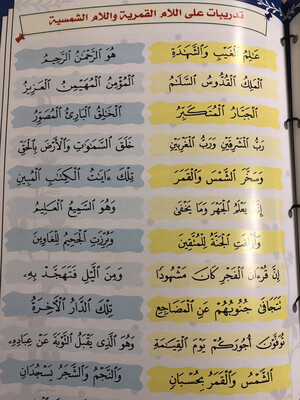 تدريبات على اللام القمرية واللام الشمسية
عَالِمُ الْغَيْبِ وَالشَّهَادَةِ هُوَ الرَّحْمَنُ الرَّحِيمُ
الْمَلِكُ الْقُدُّوسُ السَّلَامُ الْمُؤْمِنُ الْمُهَيْمِنُ الْعَزِيزُ
الْجَبَّارُ الْمُتَكَبِّرُ الْخَالِقُ الْبَارِئُ الْمُصَوِّرُ
رَبُّ الْمَشْرِقَيْنِ وَرَبُّ الْمَغْرِبَيْنِ خَلَقَ السَّمَوَاتِ وَالْأَرْضَ بِالْحَقِّ
وَسَخَّرَ الشَّمْسَ وَالْقَمَرَ تِلْكَ ءَايَتُ الْكِتَبِ الْمُبِينِ
إِنَّهُ يَعْلَمُ الْجَهْرَ وَمَا يَخْفَى وَهُوَ السَّمِيعُ الْعَلِيمُ
وَأُزْلِفَتِ الْجَنَّةُ لِلْمُتَّقِينَ وَبُرِّزَتِ الْجَحِيمُ لِلْغَاوِينَ
إِنَّ قُرْءَانَ الْفَجْرِ كَانَ مَشْهُودًا وَمِنَ الَّيْلِ فَتَهَجَّدْ بِهِ
تَتَجَافَى جُنُوبُهُمْ عَنِ الْمَضَاجِعِ تِلْكَ الدَّارُ الْآخِرَةُ
تُوَفَّوْنَ أُجُورَكُمْ يَوْمَ الْقِيَمَةِ وَهُوَ الَّذِي يَقْبَلُ التَّوْبَةَ عَنْ عِبَادِهِ
الشَّمْسُ وَالْقَمَرُ بِحُسْبَانٍ وَالنَّجْمُ وَالشَّجَرُ يَسْجُدَانِ